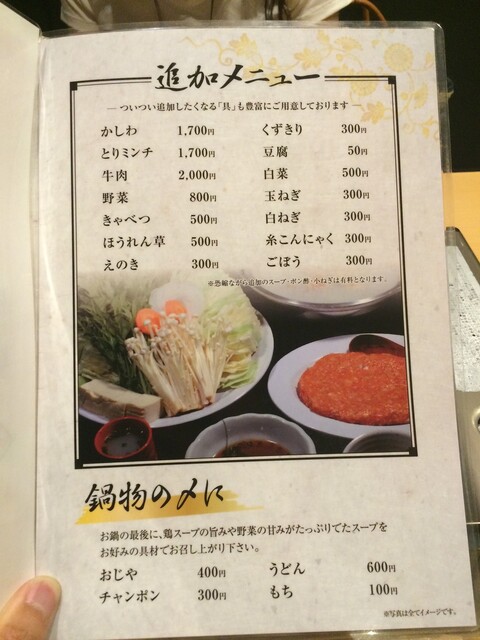 追加メニュー
― ついつい追加したくなる「具」も豊富にご用意しております ―
かしわ 1,700円 くずきり 300円
とりミンチ 1,700円 豆腐 50円
牛肉 2,000円 白菜 500円
野菜 800円 玉ねぎ 300円
きゃべつ 500円 白ねぎ 300円
ほうれん草 500円 糸こんにゃく 300円
えのき 300円 ごぼう 300円
※恐縮ながら追加のスープ・ポン酢・小ねぎは有料となります。
鍋物の〆に
お鍋の最後に、鶏スープの旨みや野菜の甘みがたっぷりでたスープを
お好みの具材でお召し上がり下さい。
おじや 400円 うどん 600円
チャンポン 300円 もち 100円
※写真は全てイメージです。